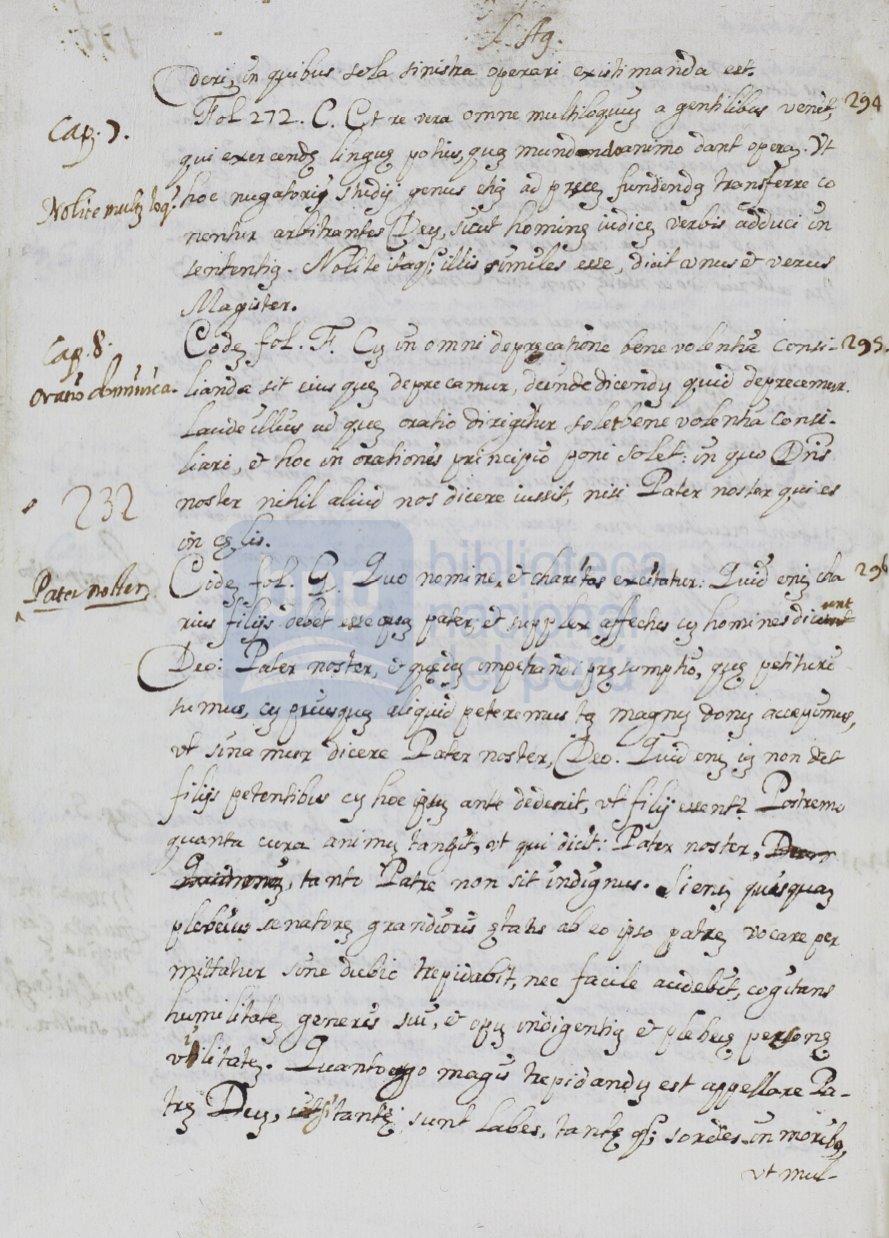 S. Ag.
deri, in quibus sola sinistra operari existimanda est.
Cap. 7.
Fol 272. C. Et re vera omne multiloquiuȝ a gentilibus venit, 294
qui exercendȩ linguȩ potius, quaȝ mundando animo dant operaȝ. Vt
Nolite multȝ loq.
hoc nugatorij studij genus etiȝ ad preceȝ fundendȝ transferre co
nentur arbitrantes Deuȝ, sicut hominȝ iudiceȝ verbis adduci in
sententiȝ. Nolite itaq; illis similes esse, dicit vnus et verus
Magister.
Cap. 8.
Codeȝ fol. F. Cuȝ in omni deprecatione benevolentia consi- 295.
Oratio dominica.
lianda sit eius queȝ deprecamur, deinde dicenduȝ quid deprecemur.
Laude illius ad queȝ oratio dirigitur solet benevolentia consi-
liari, et hoc in orationis principio poni solet: in quo Dn̄s
232
noster nihil aliud nos dicere iussit, nisi Pater noster qui es
in cȩlis.
Pater noster
Codeȝ fol. G. Quo nomine, et charitas excitatur: Quid eniȝ cha 296
rius filijs debet esse quaȝ pater, et supplex affectus cuȝ homines dicunt
Deo: Pater noster, et quȩdaȝ impetrandi prȩsumptio, quȩ petituri
sumus, cuȝ priusquaȝ aliquid peteremus tȝ magnuȝ donuȝ accepimus,
vt sinamur dicere Pater noster, Deo. Quid eniȝ iȝ non det
filijs petentibus cuȝ hoc ipsuȝ ante dederit, vt filij essent? Postremo
quanta cura animuȝ tangit, vt qui dicit: Pater noster,
tanto Patre non sit indignus. Si eniȝ quisquaȝ
plebeius senatoreȝ grandioris ȩtatis ab eo ipso patreȝ vocare per
mittatur sine dubio trepidabit, nec facile audebit, cogitans
humilitateȝ generis sui, et opuȝ indigentiȝ et plebeȩ personȩ
vilitateȝ. Quanto ergo magis trepidanduȝ est appellare Pa-
treȝ Deuȝ, si tantȩ sunt labes, tantȩ q; sordes in moribȝ,
vt mul-
biblioteca
nacional
del perú